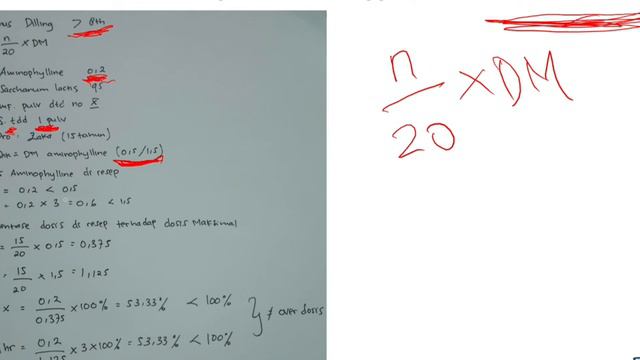 us Dilling > 8th
n/20 x DM
Aminophylline 0,2
Saccharum lactis qs
m.f. pulv dtd no X
S. tdd 1 pulv
Pro: Zaka (15 tahun)
DM aminophylline (0,5/1,5)
Aminophylline ds resep
= 0,2 < 0,5
= 0,2 x 3 = 0,6 < 1,5
entase dosis ds resep terhadap dosis Maksimal
= 15/20 x 0,5 = 0,375
= 15/20 x 1,5 = 1,125
x = 0,2/0,375 x 100% = 53,33% < 100%
≠ over dosis
hr = 0,2/1,125 x 3 x 100% = 53,33% < 100%
n/20 x DM